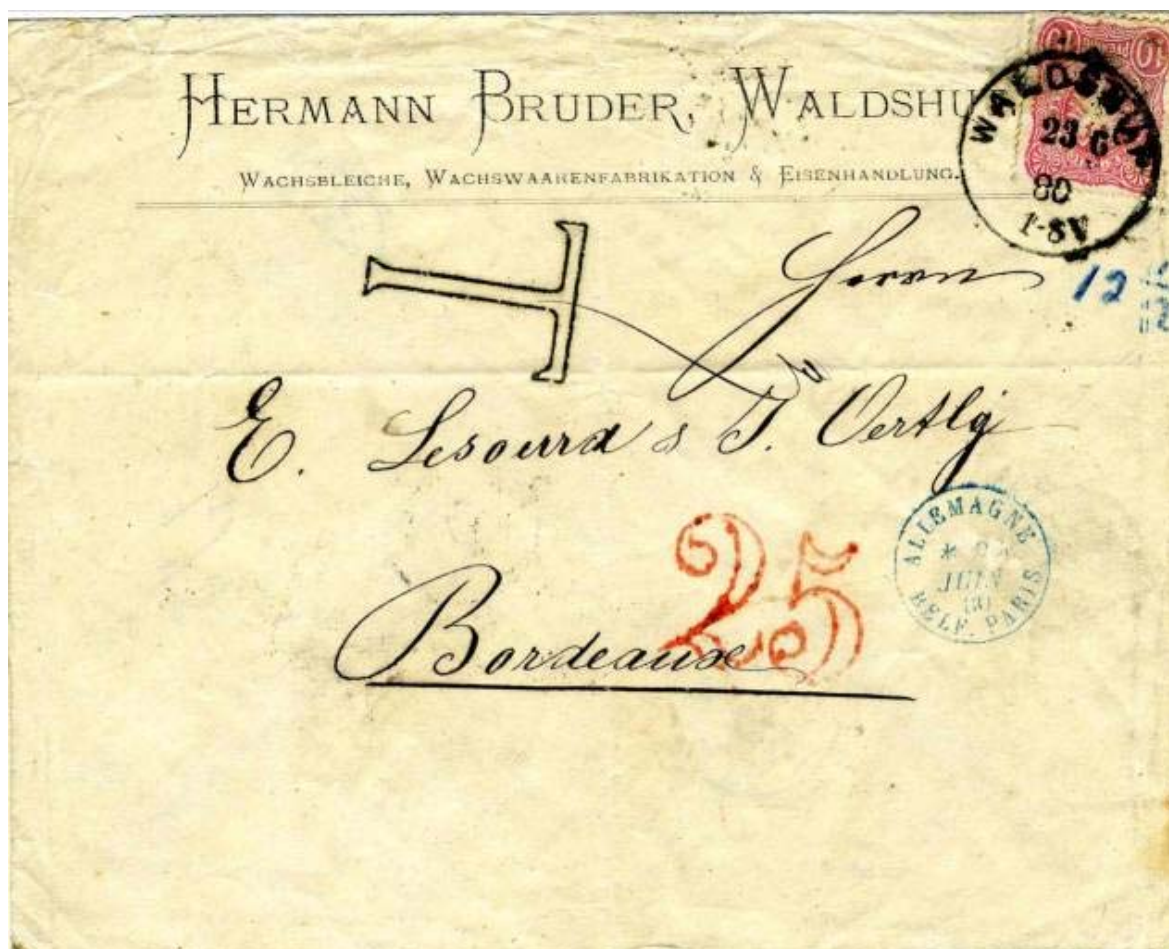 HERMANN BRUDER, WALDSHUT
WACHSBLEICHE, WACHSWAARENFABRIKATION & EISENHANDLUNG.
10 PFENNIG 10
WALDSHUT
23 6
80
1-8V
T
Herrn
12
E. Lesourd & J. Oertly
25
ALLEMAGNE
JUIN
(3)
BELF. PARIS
Bordeaux